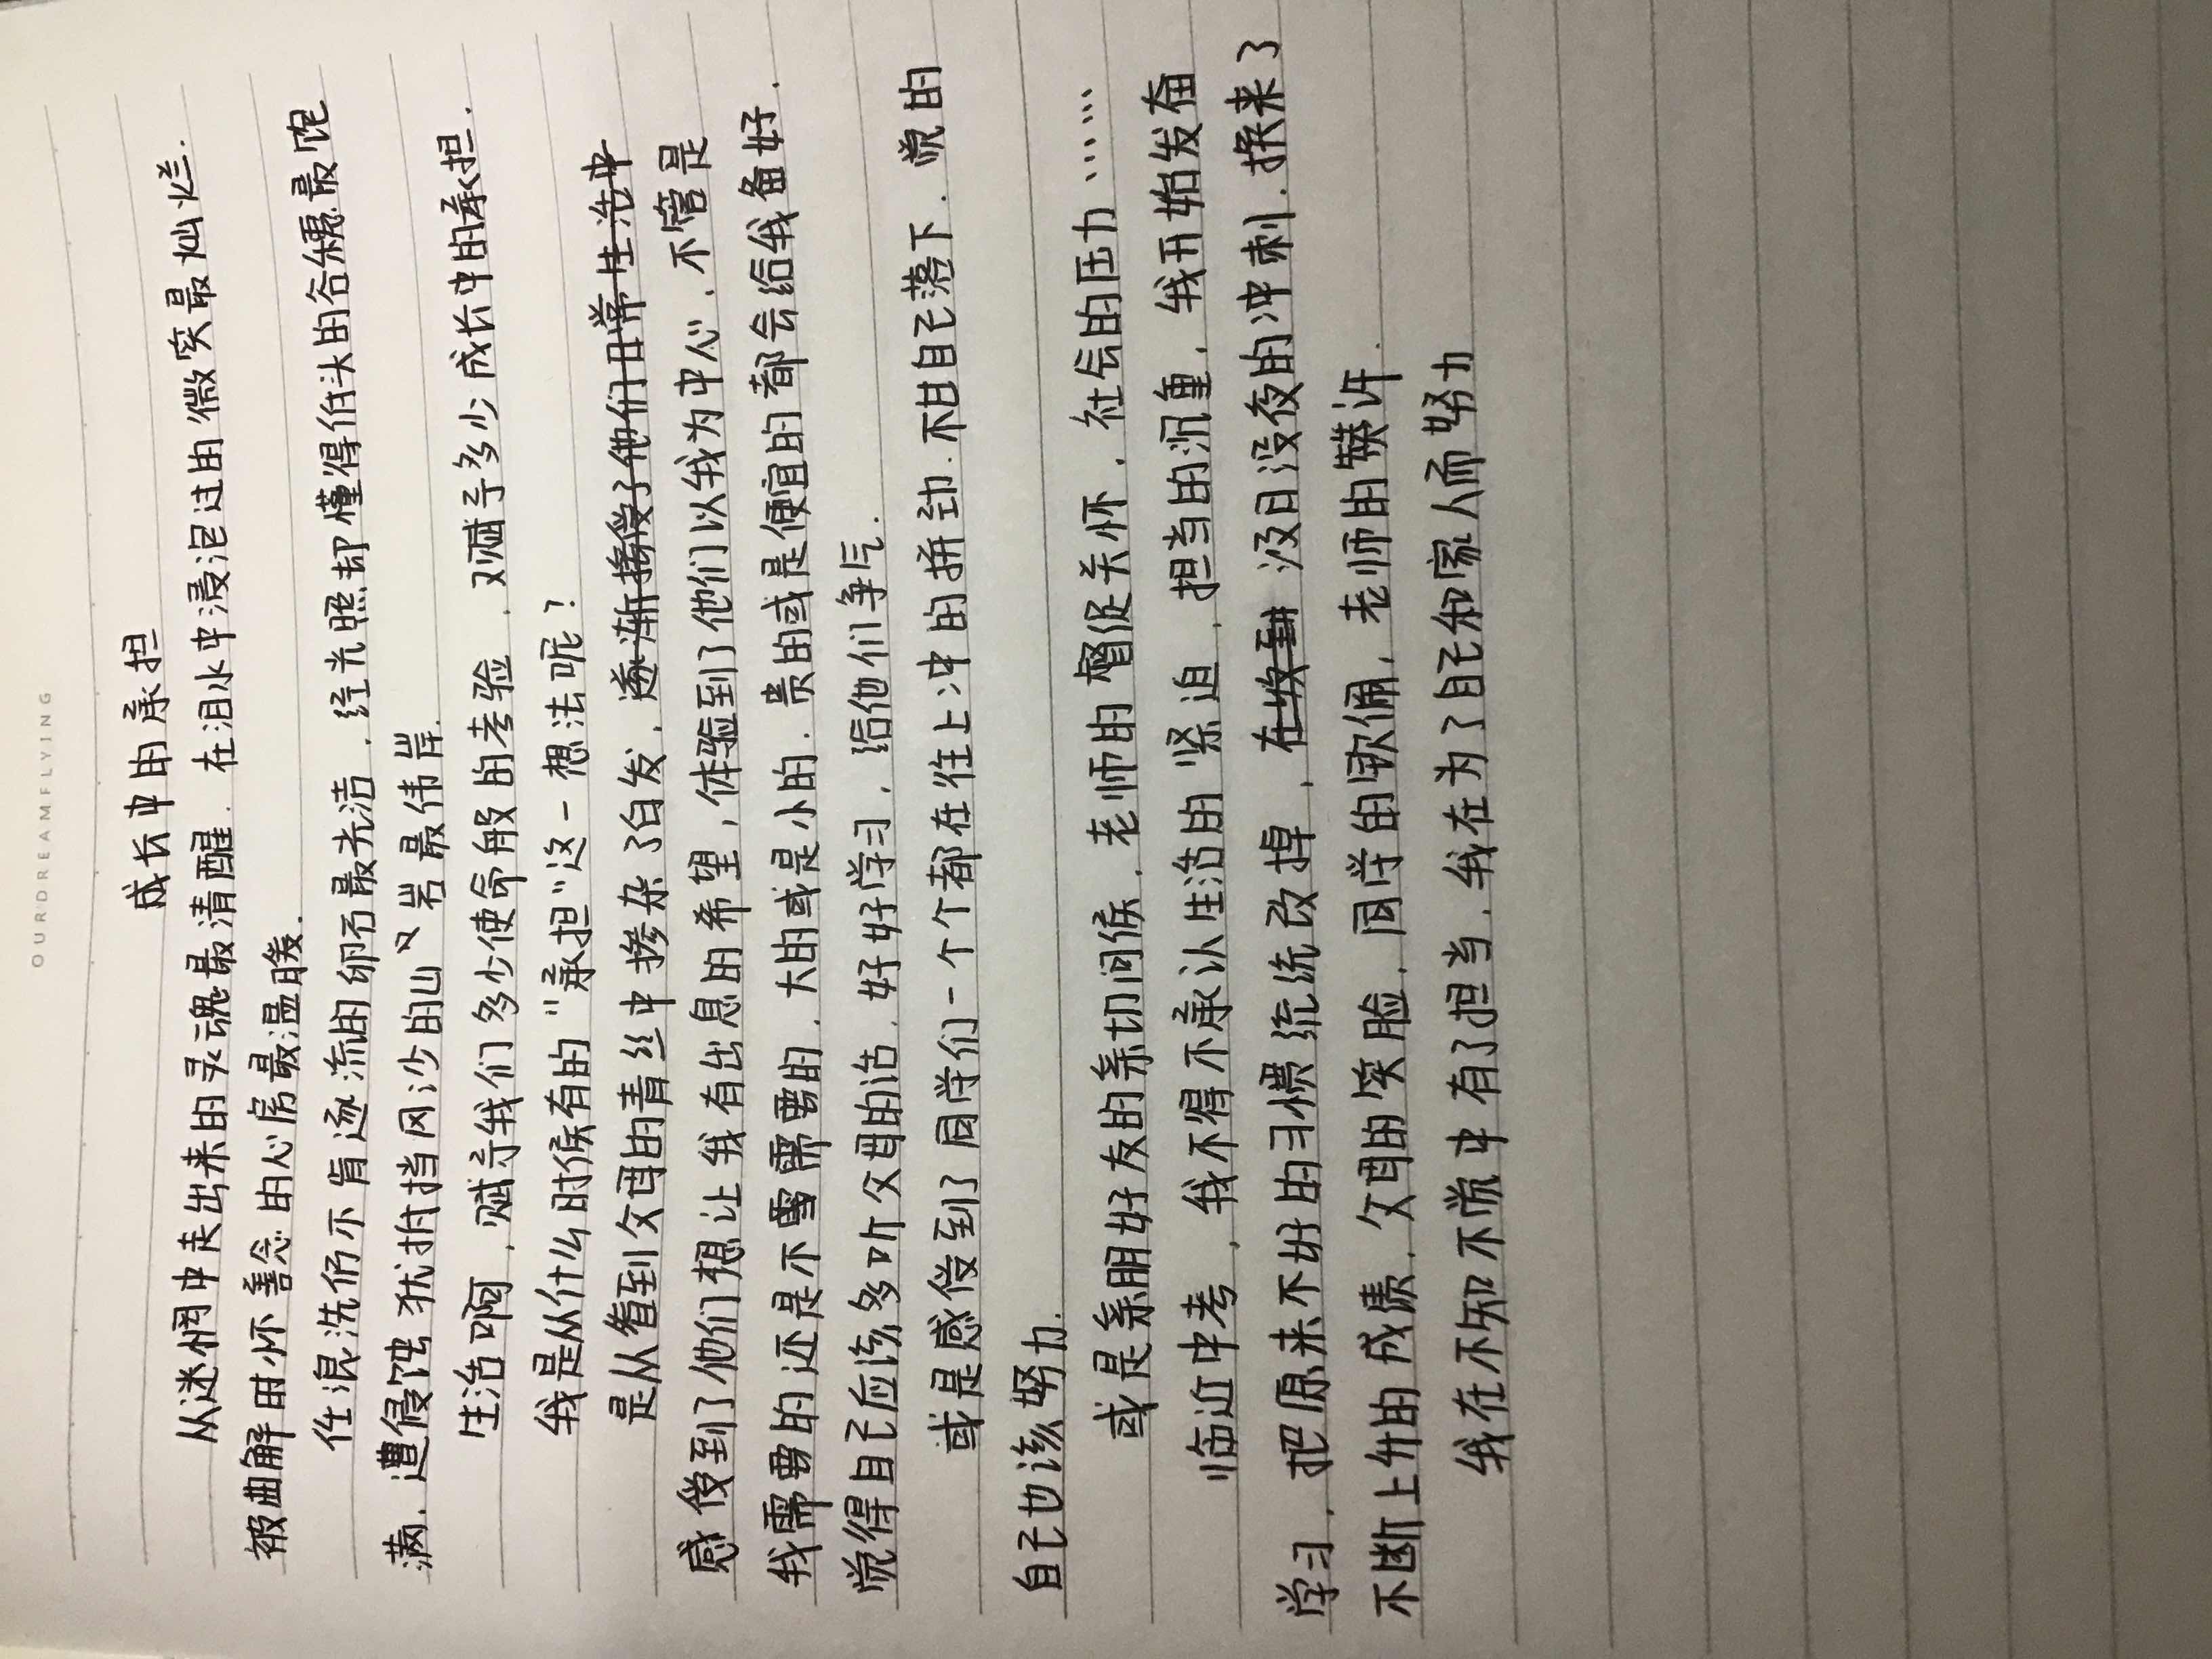 OURDREAMFLYING
成长中的承担
从迷惘中走出来的灵魂最清醒.在泪水中浸泡过的微笑最灿烂.
被曲解却怀善念的心房最温暖.
任浪洗仍不肯逐流的卵石最光洁.经光照却懂得低头的谷穗最饱
满.遭侵蚀犹抵挡风沙的山岩最伟岸.
生活啊,赋予我们多少使命般的考验.又赋予多少成长中的承担.
我是从什么时候有的"承担"这一想法呢?
是从看到父母的青丝中掺杂了白发.逐渐接受了他们日常生活中
感受到了他们想让我有出息的希望,体验到了他们以我为中心.不管是
我需要的还是不需要的.大的或是小的.贵的或是便宜的都会给我备好.
觉得自己应该多听父母的话.好好学习.给他们争气.
或是感受到了同学们一个个都在往上冲的拼劲.不甘自己落下.觉的
自己也该努力.
或是亲朋好友的亲切问候.老师的督促关怀.社会的压力......
临近中考,我不得不承认生活的紧迫,担当的沉重.我开始发奋
学习.把原来不好的习惯统统改掉,在 没日没夜的冲刺.换来了
不断上升的成绩.父母的笑脸.同学的钦佩.老师的赞许.
我在不知不觉中有了担当.我在为了自己和家人而努力